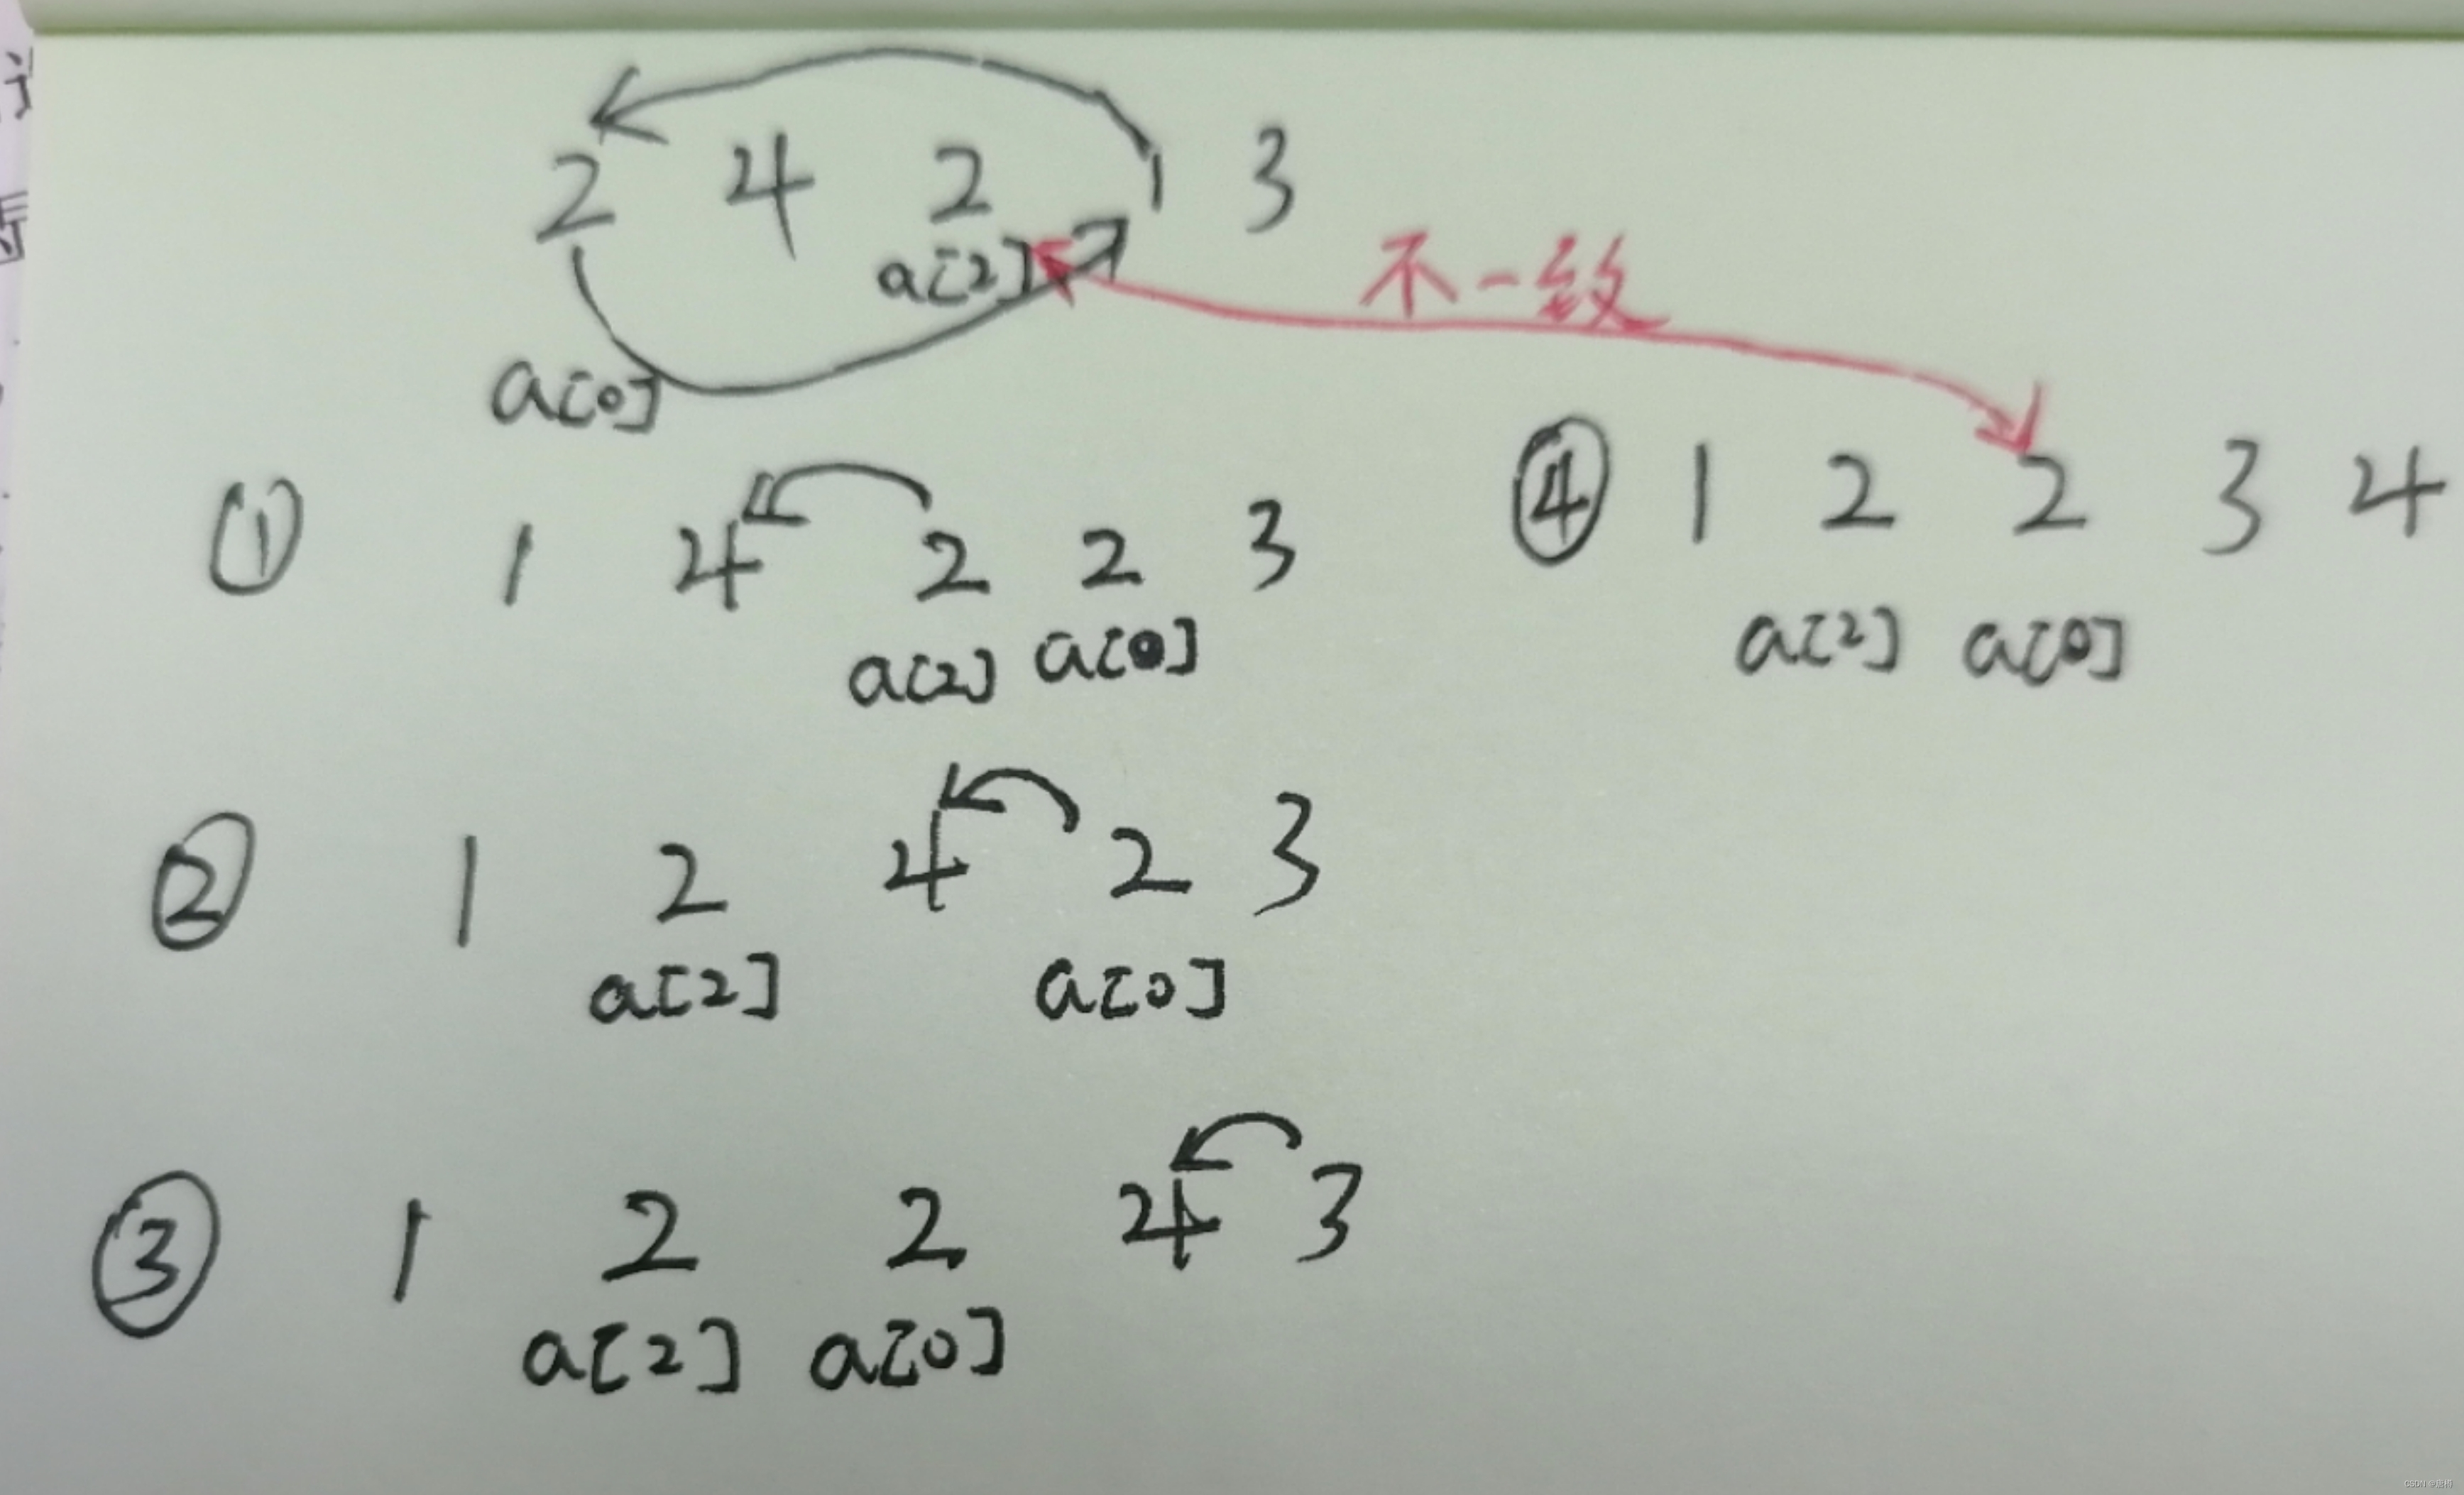 2 4 2 1 3
a[2] 不一致
a[0]
① 1 4 2 2 3
a[2] a[0]
② 1 2 4 2 3
a[2] a[0]
③ 1 2 2 4 3
a[2] a[0]
④ 1 2 2 3 4
a[2] a[0]